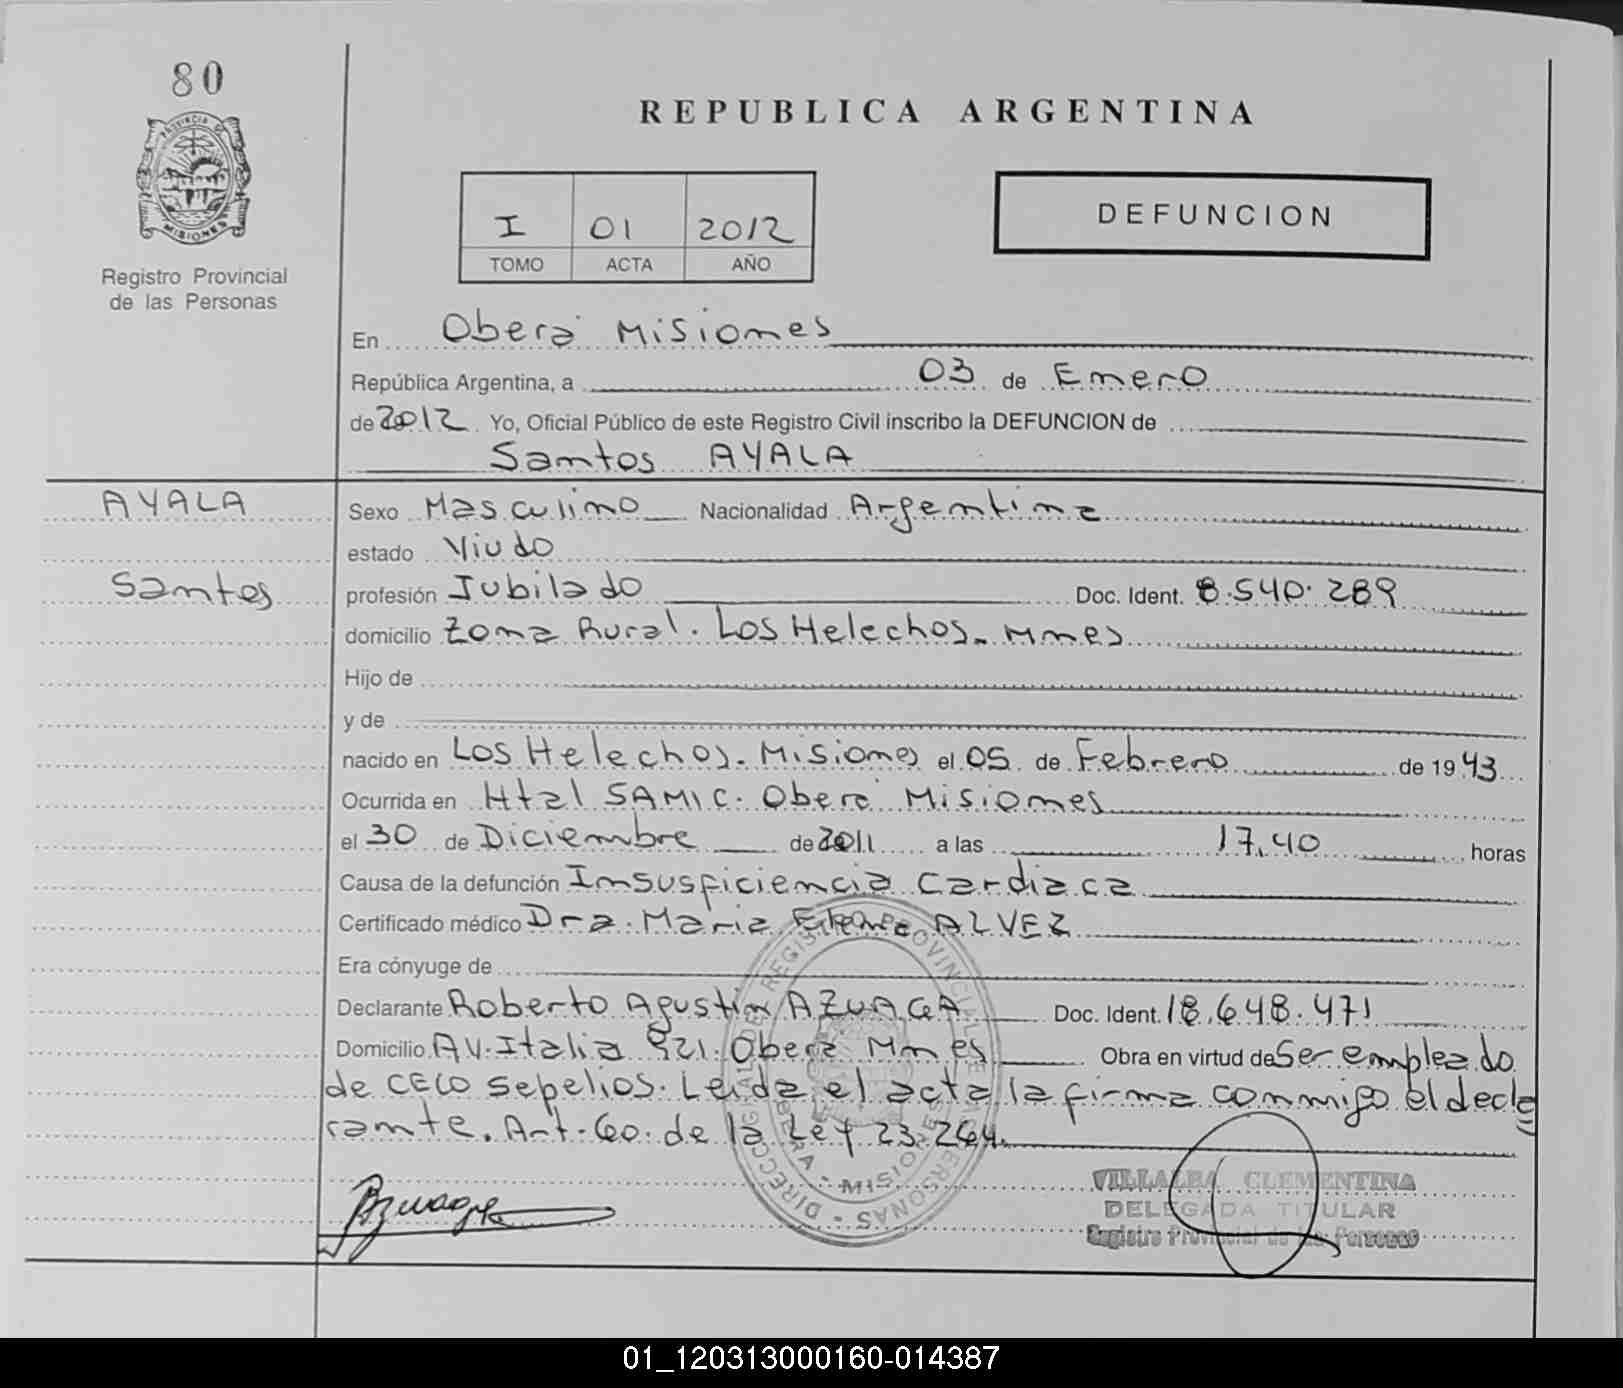 80
PROVINCIA DE
MISIONES
Registro Provincial
de las Personas
REPUBLICA ARGENTINA
I 01 2012
TOMO ACTA AÑO
DEFUNCION
En Oberá Misiones
República Argentina, a 03 de Enero
de 2012 Yo, Oficial Público de este Registro Civil inscribo la DEFUNCION de
Santos AYALA
AYALA
Santos
Sexo Masculino Nacionalidad Argentina
estado Viudo
profesión Jubilado Doc. Ident. 8.540.289
domicilio Zona Rural. Los Helechos. Mnes
Hijo de
y de
nacido en Los Helechos. Misiones el 05 de Febrero de 1943
Ocurrida en Htal SAMIC. Oberá Misiones
el 30 de Diciembre de 2011 a las 17,40 horas
Causa de la defunción Insusficiencia Cardiaca
Certificado médico Dra. Maria Elena ALVEZ
Era cónyuge de
Declarante Roberto Agustin AZUAGA Doc. Ident. 18.648.471
Domicilio Av. Italia 921. Oberá Mnes Obra en virtud de Ser empleado
de CELO Sepelios. Leida el acta la firma conmigo el decla
rante. Art. 60. de la Ley 23.264.
VILLALBA CLEMENTINA
DELEGADA TITULAR
Registro Provincial de las Personas
01_120313000160-014387